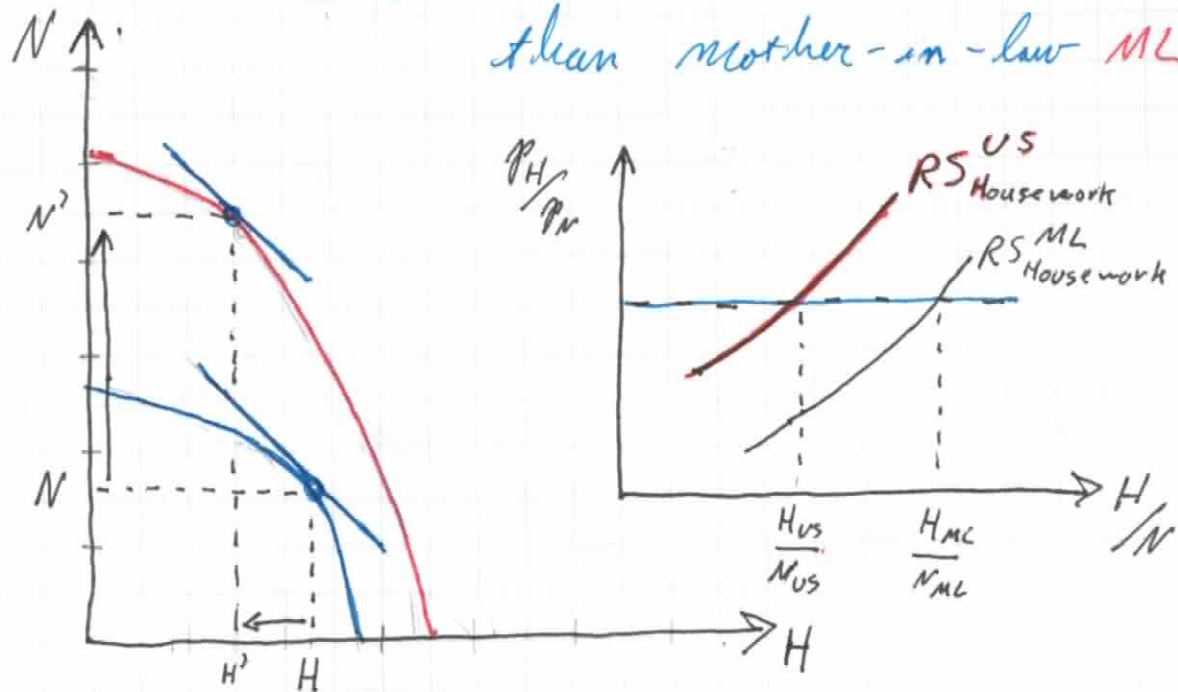 than mother-in-law ML
N
N'
N
H' H
H
P_H/P_N
RS^US_Housework
RS^ML_Housework
H_US/N_US
H_ML/N_ML
H/N